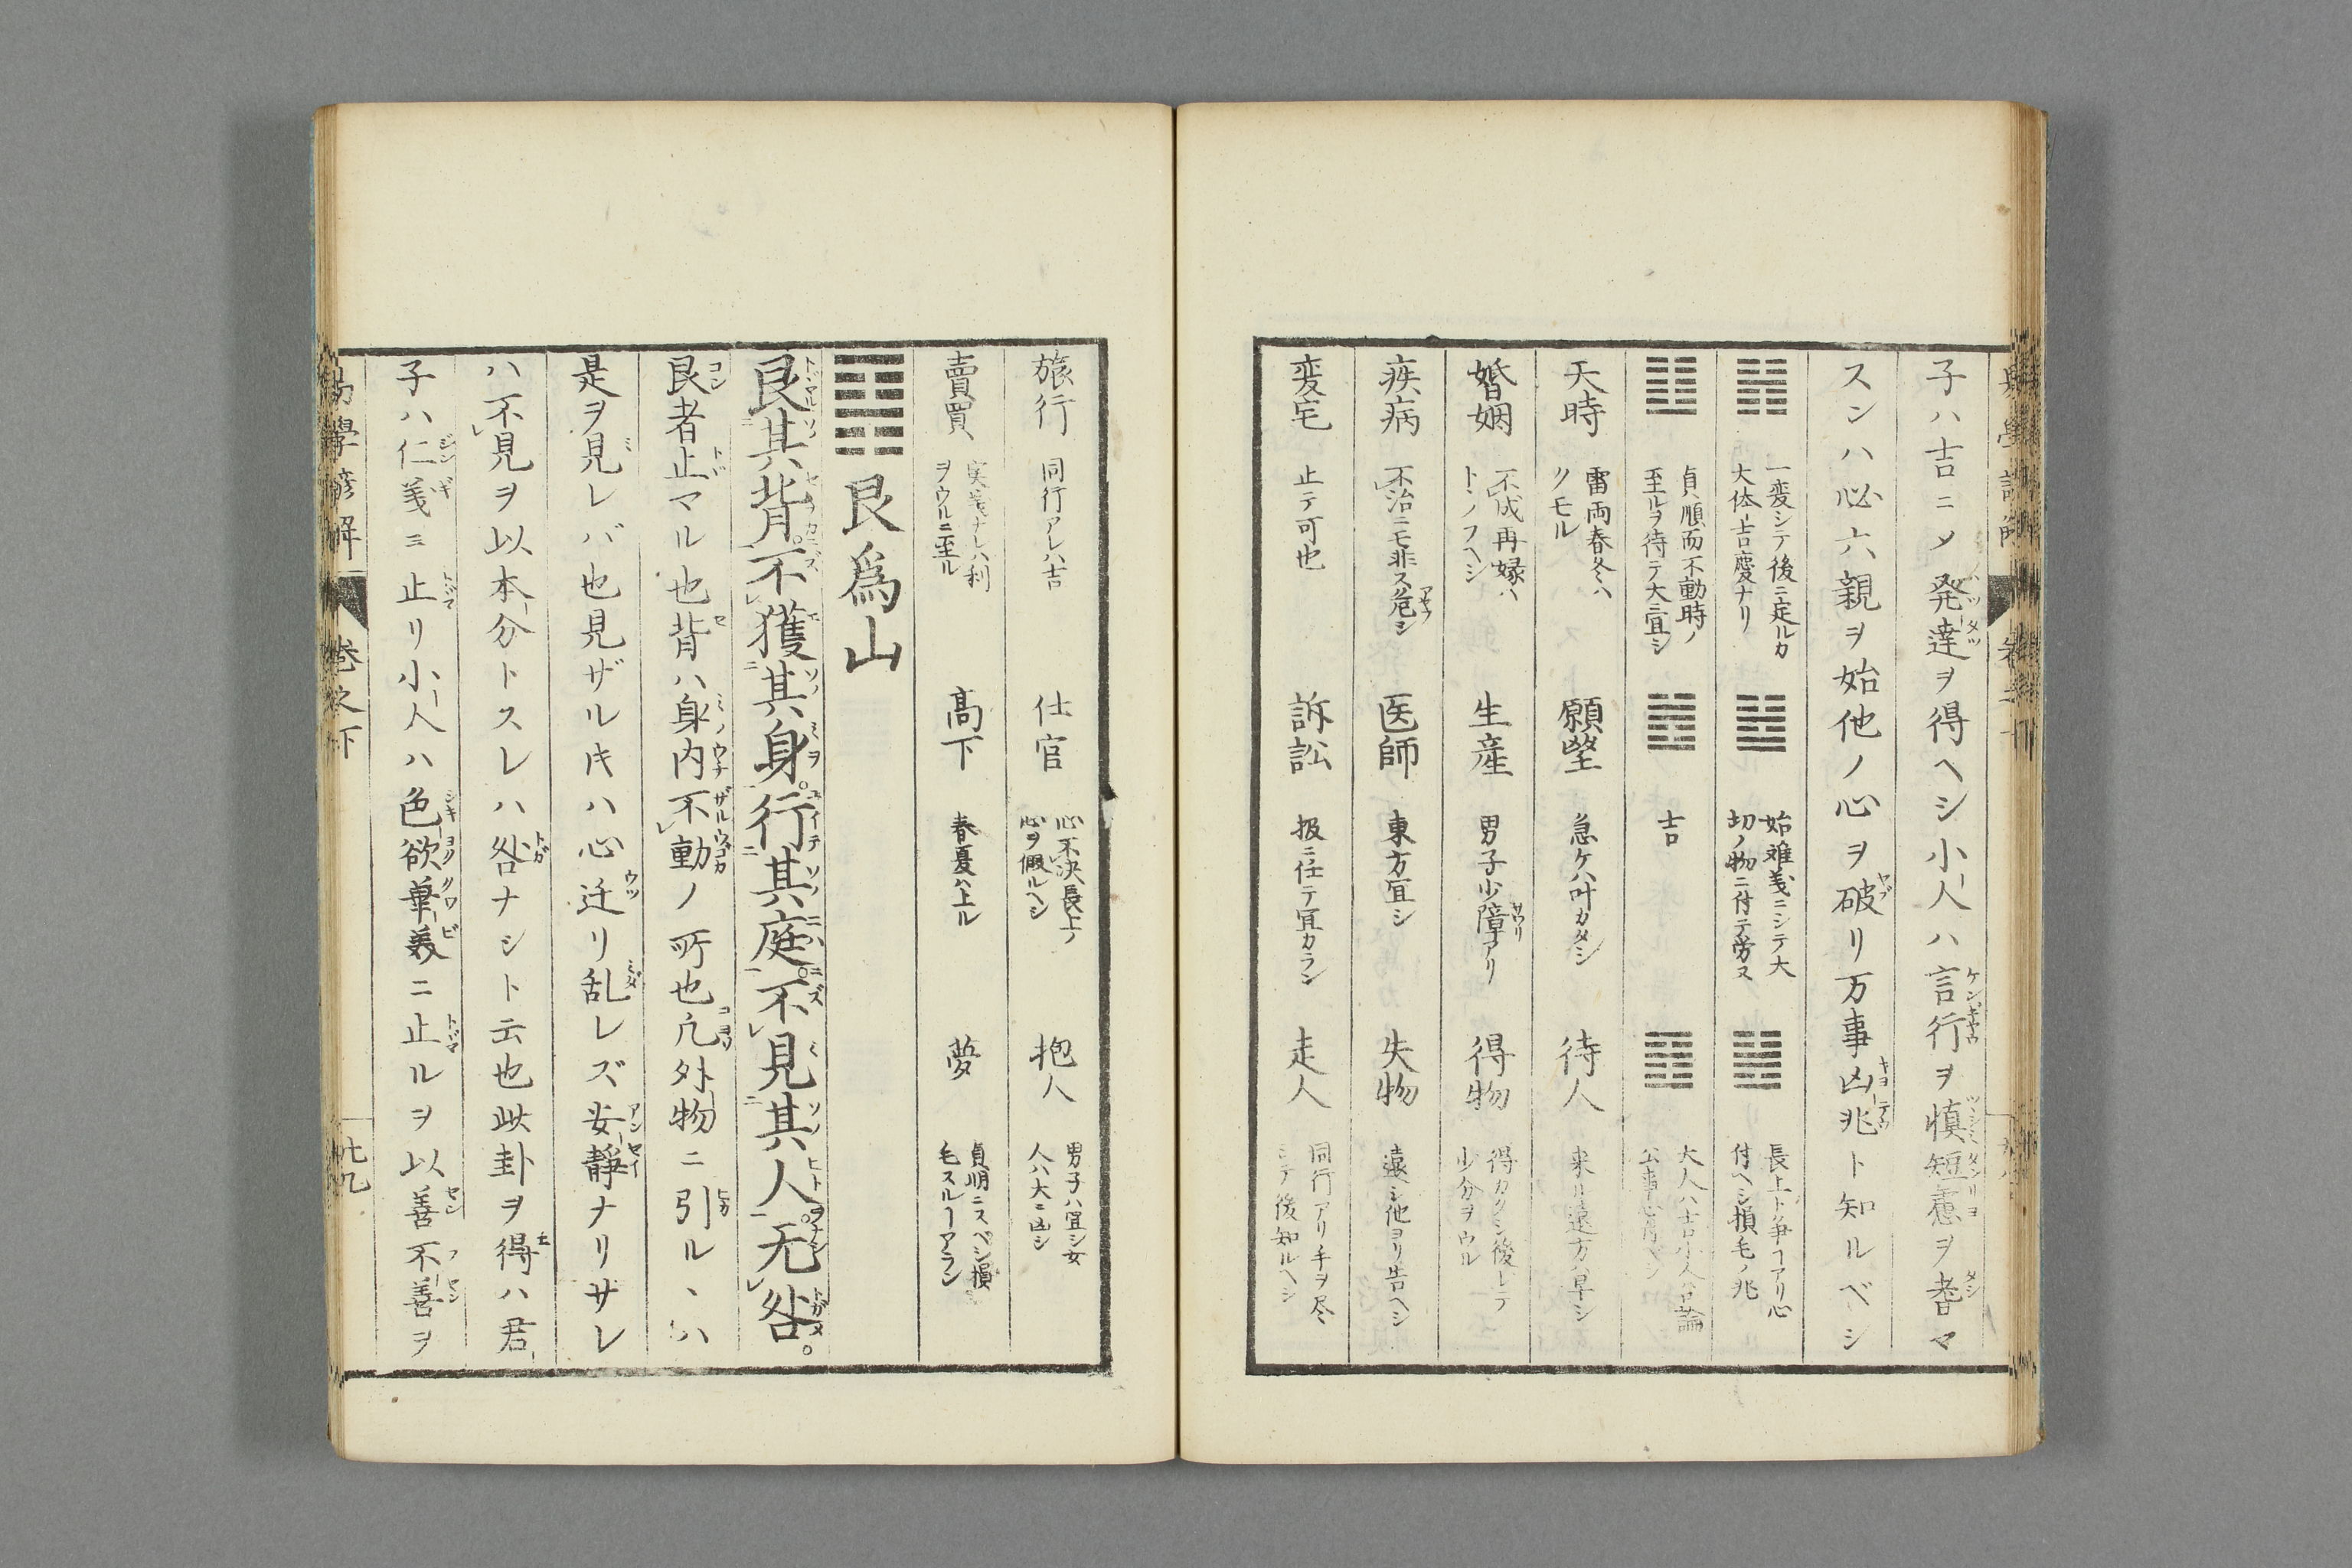 子ハ吉ニメ発達ヲ得ヘシ小人ハ言行ヲ慎短慮ヲ耆マ
スンハ必六親ヲ始他ノ心ヲ破リ万事凶兆ト知ルベシ
一変シテ後ニ定ルカ
大体吉慶ナリ
始难義ニシテ大
切ノ物ニ付テ労又
長上ト争ヿアリ心
付ヘシ損毛ノ兆
貞順而不動時ノ
至ルヲ待テ大ニ宜シ
吉
大人ハ吉小人ハ口論
天時
雷雨春冬ハ
リモル
願望
急ケハ叶カタシ
待人
来リ遠方ハ早シ
婚姻
不成再縁ハ
トノフヘシ
生産
男子少障アリ
得物
得カタシ後レテ
少分ヲウル
疾病
不治ニモ非ス危シ
医師
東方宜シ
失物
遠シ他ヨリ告ヘシ
変宅
止テ可也
訴訟
扱ニ任テ宜カラン
走人
同行アリ手ヲ尽
シテ後知ルヘシ
旅行
同行アレハ吉
仕官
心不决長上ノ
心ヲ假ルヘシ
抱人
男子ハ宜シ女
人ハ大ニ凶シ
賣買
実義ナレハ利
ヲウルニ至ル
高下
春夏ハ上ル
夢
貞順ニスベシ損
毛スルヿアラン
艮爲山
艮其背。不獲其身。行其庭。不見其人。无咎。
艮者止マル也背ハ身内不動ノ所也凢外物ニ引ルヽハ
是ヲ見レバ也見ザル𪜈ハ心迁リ乱レズ安靜ナリサレ
ハ不見ヲ以本分トスレハ咎ナシト云也此卦ヲ得ハ君
子ハ仁義ニ止リ小人ハ色欲華美ニ止ルヲ以善不善ヲ
易學諺解
巻之下